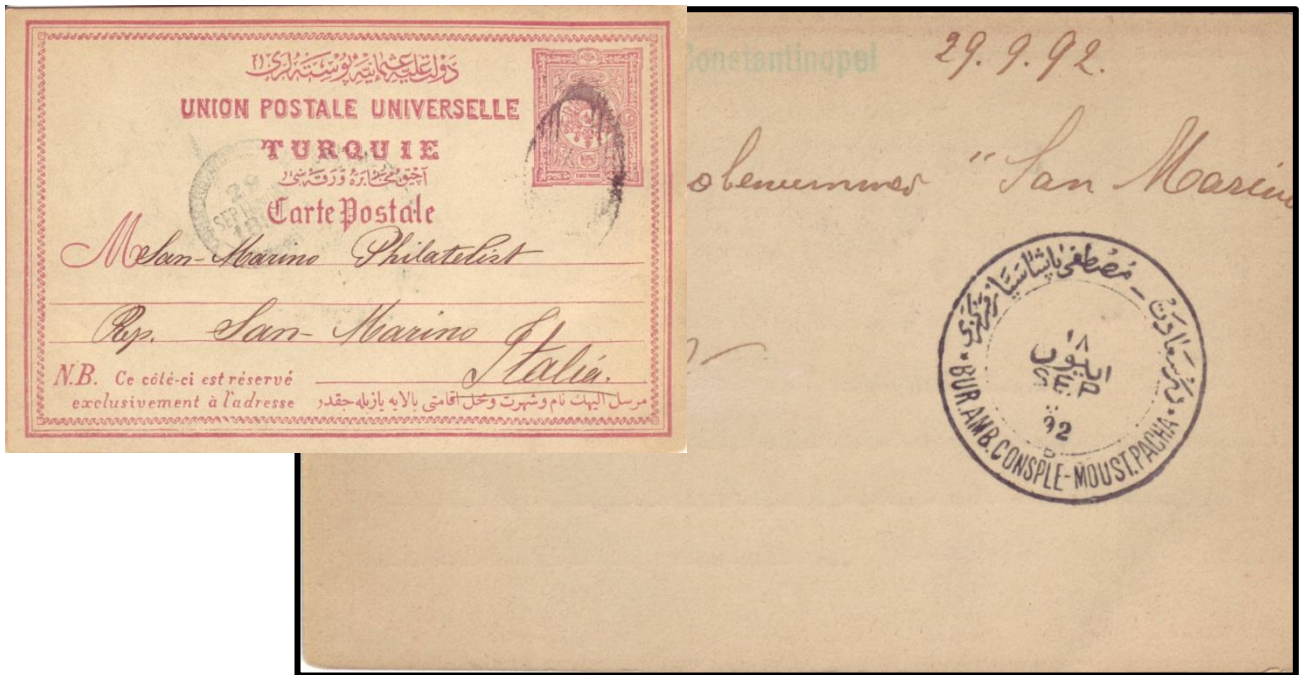 دولت علیه عثمانیه پوسته لری
UNION POSTALE UNIVERSELLE
TURQUIE
آچیق مخابره ورقه سی
Carte Postale
M San-Marino Philatelist
Rep. San-Marino
Italia.
N.B. Ce côté-ci est réservé
exclusivement à l'adresse
مرسل الیهك نام و شهرت و محل اقامتی بالایه یازیله جقدر
29
SEP
Constantinopel
29.9.92.
"San Marino
در سعادت - مصطفى پاشا سیار
١٨
ایلول
SEP
92
BUR.AMB.CONSPLE-MOUST.PACHA